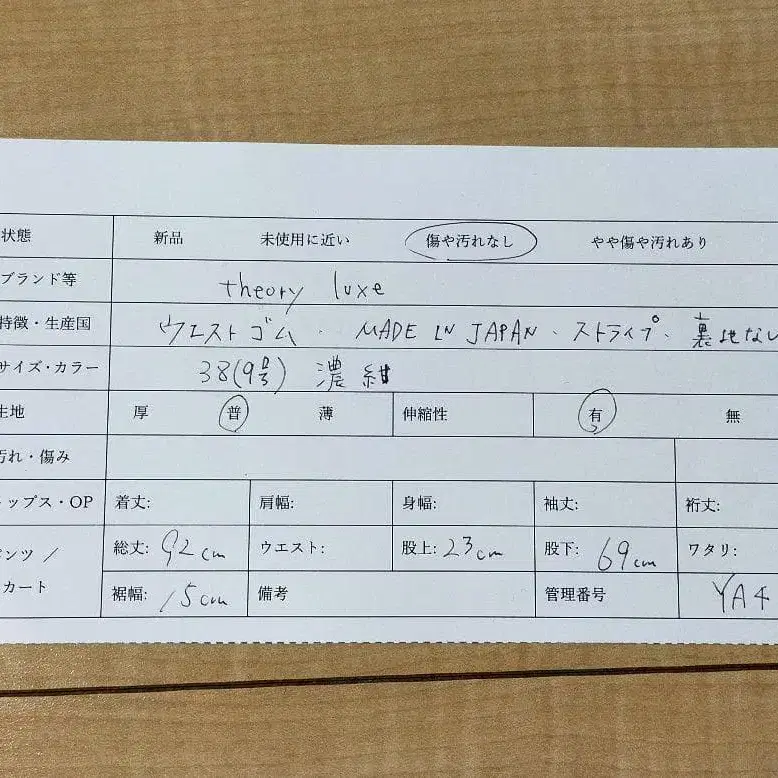 状態 新品 未使用に近い 傷や汚れなし やや傷や汚れあり
ブランド等 theory luxe
特徴・生産国 ウエストゴム・ MADE IN JAPAN・ストライプ・裏地ない
サイズ・カラー 38(9号) 濃紺
生地 厚 普 薄 伸縮性 有 無
汚れ・傷み
トップス・OP 着丈: 肩幅: 身幅: 袖丈: 裄丈:
パンツ / 総丈: 92cm ウエスト: 股上: 23cm 股下: 69cm ワタリ:
スカート 裾幅: 15cm 備考 管理番号 YA4